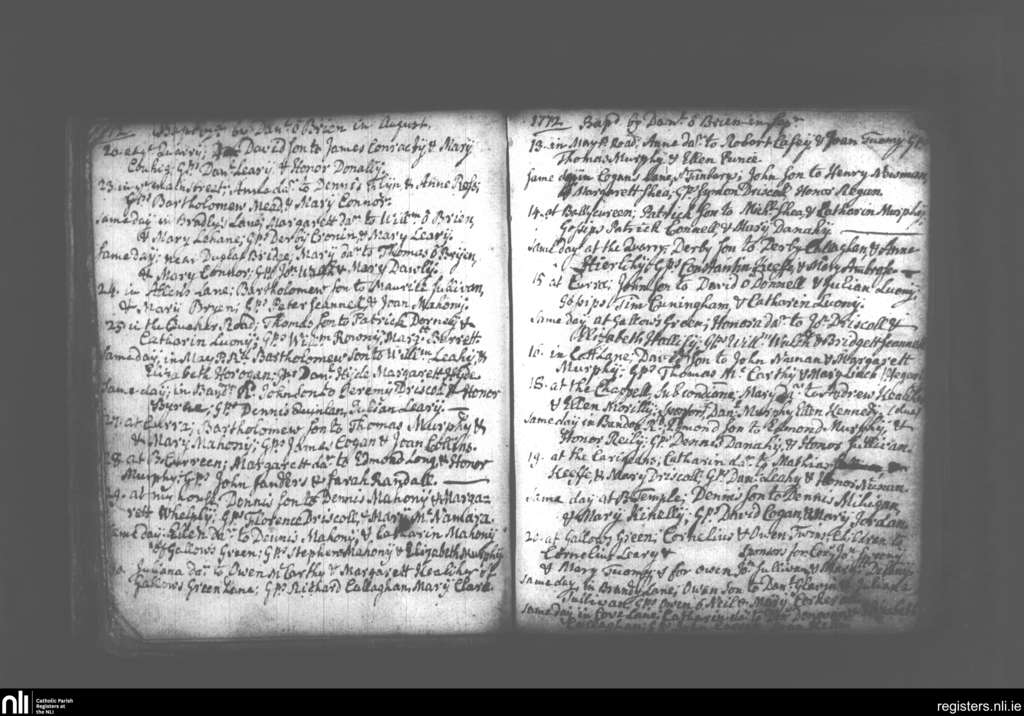 1772 Baptisms by Danl. ô Brien in August.
20. at Currai; David Son to James & Mary
Gps. Danl. Leary; & Honor Donally.
23. in Street; Anne dar. to Dennis & Anne Ross;
Gps. Bartholomew Mead & Mary Connor.
same day in Bradley Lane; Margarett dar. to Willm. ô Brien,
& Mary Lehane; Gps. Derby Cronin, & Mary Leary.
same day: near Duglas Bridge; Mary dar. to Thomas ô Brien,
& Mary Connor; Gps. Jos. & Mary Dawly.
24. in Lane; Bartholomew Son to Maurice Sulivan,
& Mary Bryen; Gps. Peter Jeannell & Joan Mahony.
25 in the Quaker Road; Thomas Son to Patrick Dorney &
Catharin Luomy; Gps. Willm. Mary Barrett
same day, in May Rd. Bartholomew Son to Willm. Leahy, &
Elizabeth Horogan; Gps. Danl. Hyde Margarett Hyde
same day; in Band: Rd. John Son to Jeremy Driscol & Honor
Byrne, Gps. Dennis Quinlan, Julian Leary.
27. at Curra; Bartholomew Son to Thomas Murphy &
& Mary Mahony; Gps. James Cogan & Joan Collins.
28. at B:Curreen; Margarett dar. to Edmond Long, & Honor
Murphy; Gps. John Sanders & Sarah Randall.
29. at his house Dennis Son to Dennis Mahony & Marga-
rett Whelply; Gps. Florence Driscoll, & Mary Mc. Namara.
same day; Ellen dar. to Dennis Mahony, & Catharin Mahony
of Gallows Green; Gps. Stephen Mahony & Elizabeth Murphy
Juliana dar. to Owen Mc Carthy & Margarett Kealiher of
Gallows Green Lane; Gps. Richard Callaghan, Mary Clare.
1772 Bapd. by Danl. ô Brien in Sepr.
13. in Mayl. Road, Anne dar. to Robert & Joan Twomy Gps.
Thomas Murphy & Ellen Punce
same day in Cogans Lane, John Son to Henry Newman,
& Margarett Shea; Gps. Driscoll Honor Regan
14. at Ballycureen; Patrick Son to Michl. Shea & Catharin Murphy;
Gossips Patrick Connell, & Mary Danahy
same day at the Quarry; Derby Son to Derby Callaghan, & Anne
Hierlihy; Gps. Constantin Keeffe & Mary Ambrose
15 at Curra; John Son to David ô Donnell & Julian Luomy;
Gossips Tim: Cuningham & Catharin Luomy.
same day at Gallows Green; Honora dar. to Jos. Driscoll &
Elizabeth Gps. Willm. Walsh & Bridgett Jeannell
16. in Catt Lane, David Son to John Nunan & Margarett
Murphy; Gps. Thomas Mc. Carthy & Mary Linch
18. at the Chappell, Sub Conditione; Mary dar. to Andrew
& Ellen Sponsors, Dan: Murphy Ellen Kennedy
same day in Bandon Rd. Edmond Son to Edmond Murphy, &
Honor Reily; Gps. Dennis Danahy, & Honor Sulivan.
19. at the Catharin dar. to Mathias
Keeffe, & Mary Driscoll; Gps. Danl. Leahy & Honor Nunan
same day at B:Temple; Dennis Son to Dennis Miligan,
& Mary Kihelly; Gps. David Cogan, & Mary Jordan
20. at Gallows Green; Cornelius & Owen Twins to
Cornelius Leary & Sponsors for Cors. Jos.
& Mary Twomy, & for Owen Jos. Sullivan &
same day, in Brandy Lane, Owen Son to Danl. &
Sullivan Gps. Owen ô Neil & Mary
same day in Love Lane, Catharin dar. to Donovan
nli
Catholic Parish
Registers at
the NLI
registers.nli.ie